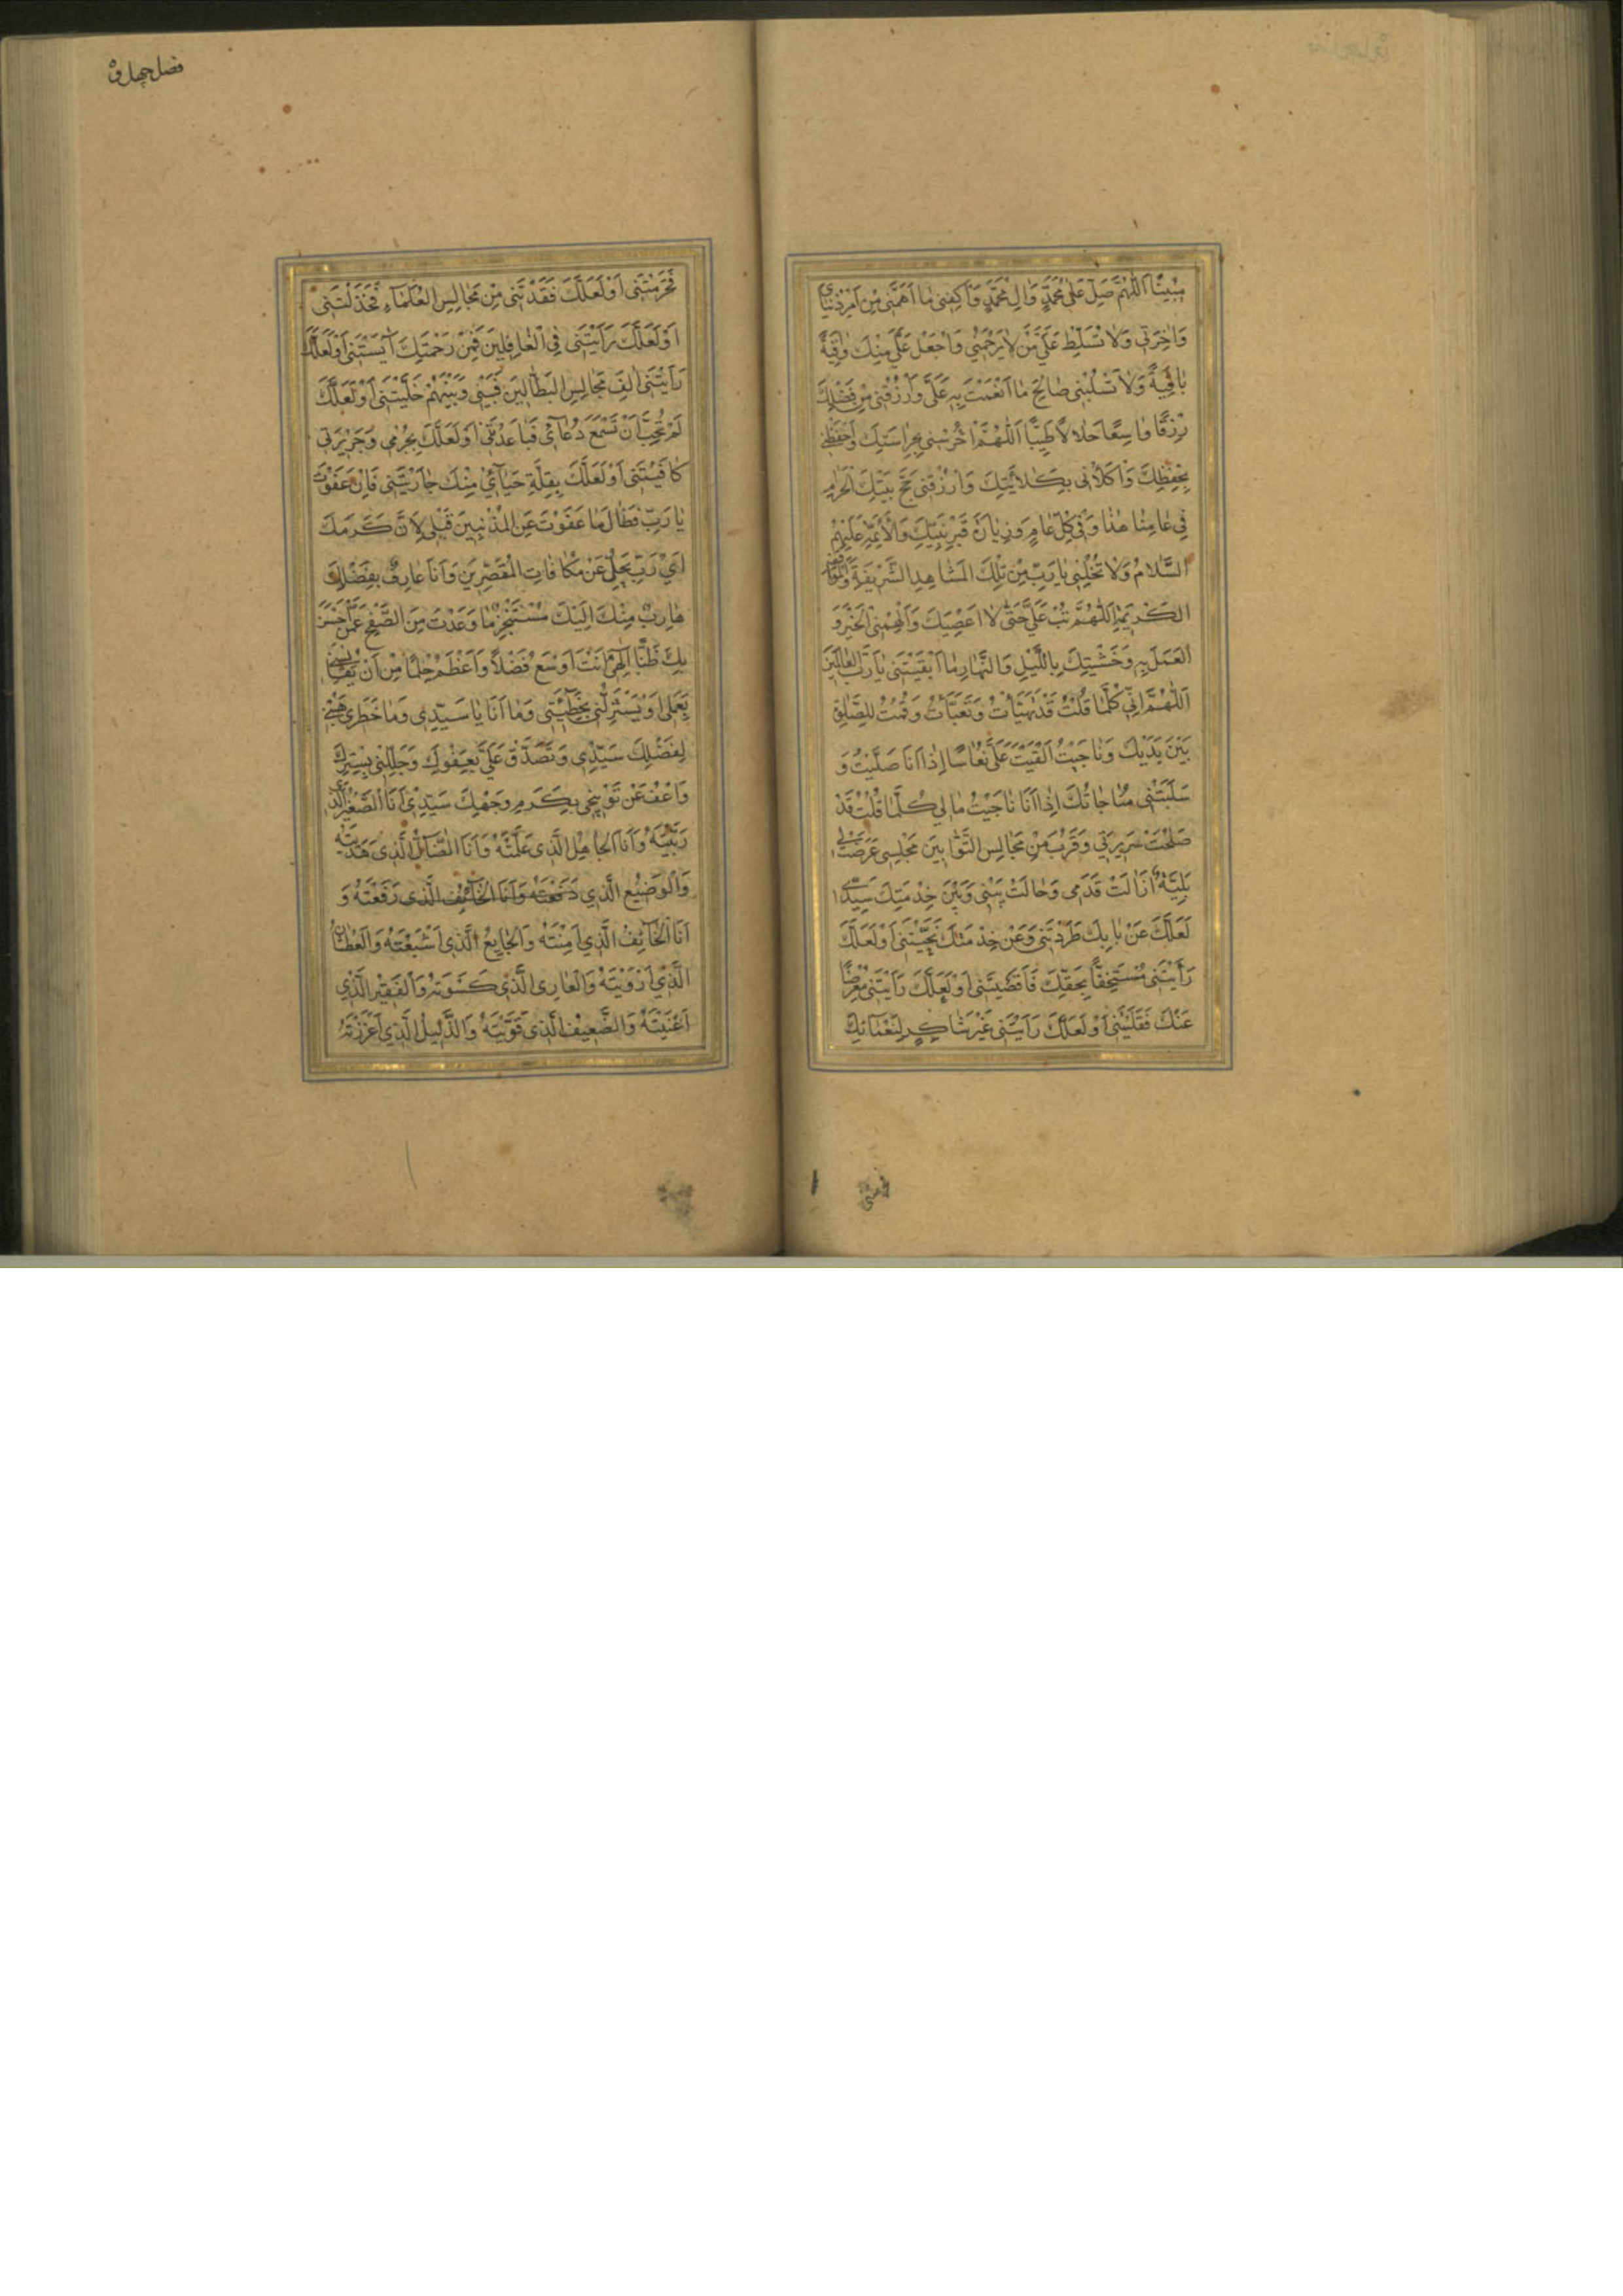 مُبِينًا اَللّٰهُمَّ صَلِّ عَلٰى مُحَمَّدٍ وَاٰلِ مُحَمَّدٍ وَاكْفِنِى مٰا اَهَمَّنِى مِنْ اَمْرِ دُنْيٰاىَ
وَاٰخِرَتِى وَلاٰ تُسَلِّطْ عَلَىَّ مَنْ لاٰ يَرْحَمُنِى وَاجْعَلْ عَلَىَّ مِنْكَ وٰاقِيَةً
بٰاقِيَةً وَلاٰ تَسْلُبْنِى صٰالِحَ مٰا اَنْعَمْتَ بِهِ عَلَىَّ وَارْزُقْنِى مِنْ فَضْلِكَ
رِزْقًا وٰاسِعًا حَلاٰلاً طَيِّبًا اَللّٰهُمَّ احْرُسْنِى بِحِرٰاسَتِكَ وَاحْفَظْنِى
بِحِفْظِكَ وَاكْلَأْنِى بِكَلاٰئَتِكَ وَارْزُقْنِى حَجَّ بَيْتِكَ الْحَرٰامِ
فِى عٰامِنٰا هٰذٰا وَفِى كُلِّ عٰامٍ وَزِيٰارَةَ قَبْرِ نَبِيِّكَ وَالْاَئِمَّةِ عَلَيْهِمُ
السَّلاٰمُ وَلاٰ تُخْلِنِى يٰا رَبِّ مِنْ تِلْكَ الْمَشٰاهِدِ الشَّرِيفَةِ وَالْمَوٰاقِفِ
الْكَرِيمَةِ اَللّٰهُمَّ تُبْ عَلَىَّ حَتّٰى لاٰ اَعْصِيَكَ وَاَلْهِمْنِى الْخَيْرَ وَ
الْعَمَلَ بِهِ وَخَشْيَتِكَ بِاللَّيْلِ وَالنَّهٰارِ مٰا اَبْقَيْتَنِى يٰا رَبَّ الْعٰالَمِينَ
اَللّٰهُمَّ اِنِّى كُلَّمٰا قُلْتُ قَدْ تَهَيَّأْتُ وَتَعَبَّأْتُ وَقُمْتُ لِلصَّلٰوةِ
بَيْنَ يَدَيْكَ وَنٰاجَيْتُكَ اَلْقَيْتَ عَلَىَّ نُعٰاسًا اِذٰا اَنَا صَلَّيْتُ وَ
سَلَبْتَنِى مُنٰاجٰاتَكَ اِذٰا اَنَا نٰاجَيْتُ مٰالِى كُلَّمٰا قُلْتُ قَدْ
صَلُحَتْ سَرِيرَتِى وَقَرُبَ مِنْ مَجٰالِسِ التَّوّٰابِينَ مَجْلِسِى عَرَضَتْ لِى
بَلِيَّةٌ اَزٰالَتْ قَدَمِى وَحٰالَتْ بَيْنِى وَبَيْنَ خِدْمَتِكَ سَيِّدِى
لَعَلَّكَ عَنْ بٰابِكَ طَرَدْتَنِى وَعَنْ خِدْمَتِكَ نَحَّيْتَنِى اَوْ لَعَلَّكَ
رَاَيْتَنِى مُسْتَخِفًّا بِحَقِّكَ فَاَقْصَيْتَنِى اَوْ لَعَلَّكَ رَاَيْتَنِى مُعْرِضًا
عَنْكَ فَقَلَيْتَنِى اَوْ لَعَلَّكَ رَاَيْتَنِى غَيْرَ شٰاكِرٍ لِنَعْمٰائِكَ
فحرمتنى
فصل چهارم
فَحَرَمْتَنِى اَوْ لَعَلَّكَ فَقَدْتَنِى مِنْ مَجٰالِسِ الْعُلَمٰاءِ فَخَذَلْتَنِى
اَوْ لَعَلَّكَ رَاَيْتَنِى فِى الْغٰافِلِينَ فَمِنْ رَحْمَتِكَ اٰيَسْتَنِى اَوْ لَعَلَّكَ
رَاَيْتَنِى اٰلِفَ مَجٰالِسِ الْبَطّٰالِينَ فَبَيْنِى وَبَيْنَهُمْ خَلَّيْتَنِى اَوْ لَعَلَّكَ
لَمْ تُحِبَّ اَنْ تَسْمَعَ دُعٰائِى فَبٰاعَدْتَنِى اَوْ لَعَلَّكَ بِجُرْمِى وَجَرِيرَتِى
كٰافَيْتَنِى اَوْ لَعَلَّكَ بِقِلَّةِ حَيٰائِى مِنْكَ جٰازَيْتَنِى فَاِنْ عَفَوْتَ
يٰا رَبِّ فَطٰالَ مٰا عَفَوْتَ عَنِ الْمُذْنِبِينَ قَبْلِى لِاَنَّ كَرَمَكَ
اَىْ رَبِّ يَجِلُّ عَنْ مُكٰافٰاتِ الْمُقَصِّرِينَ وَاَنَا عٰارِفٌ بِفَضْلِكَ
هٰارِبٌ مِنْكَ اِلَيْكَ مُتَنَجِّزٌ مٰا وَعَدْتَ مِنَ الصَّفْحِ عَمَّنْ اَحْسَنَ
بِكَ ظَنًّا اِلٰهِى اَنْتَ اَوْسَعُ فَضْلاً وَاَعْظَمُ حِلْمًا مِنْ اَنْ تُقٰايِسَنِى
بِعَمَلِى اَوْ تَسْتَزِلَّنِى بِخَطِيئَتِى وَمٰا اَنَا يٰا سَيِّدِى وَمٰا خَطَرِى هَبْنِى
لِفَضْلِكَ سَيِّدِى وَتَصَدَّقْ عَلَىَّ بِعَفْوِكَ وَجَلِّلْنِى بِسَتْرِكَ
وَاعْفُ عَنْ تَوْبِيخِى بِكَرَمِ وَجْهِكَ سَيِّدِى اَنَا الصَّغِيرُ الَّذِى
رَبَّيْتَهُ وَاَنَا الْجٰاهِلُ الَّذِى عَلَّمْتَهُ وَاَنَا الضّٰالُّ الَّذِى هَدَيْتَهُ
وَالْوَضِيعُ الَّذِى رَفَعْتَهُ وَاَنَا الْخٰائِفُ الَّذِى رَفَعْتَهُ وَ
اَنَا الْخٰائِفُ الَّذِى اٰمَنْتَهُ وَالْجٰايِعُ الَّذِى اَشْبَعْتَهُ وَالْعَطْشٰانُ
الَّذِى اَرْوَيْتَهُ وَالْعٰارِى الَّذِى كَسَوْتَهُ وَالْفَقِيرُ الَّذِى
اَغْنَيْتَهُ وَالضَّعِيفُ الَّذِى قَوَّيْتَهُ وَالذَّلِيلُ الَّذِى اَعْزَزْتَهُ